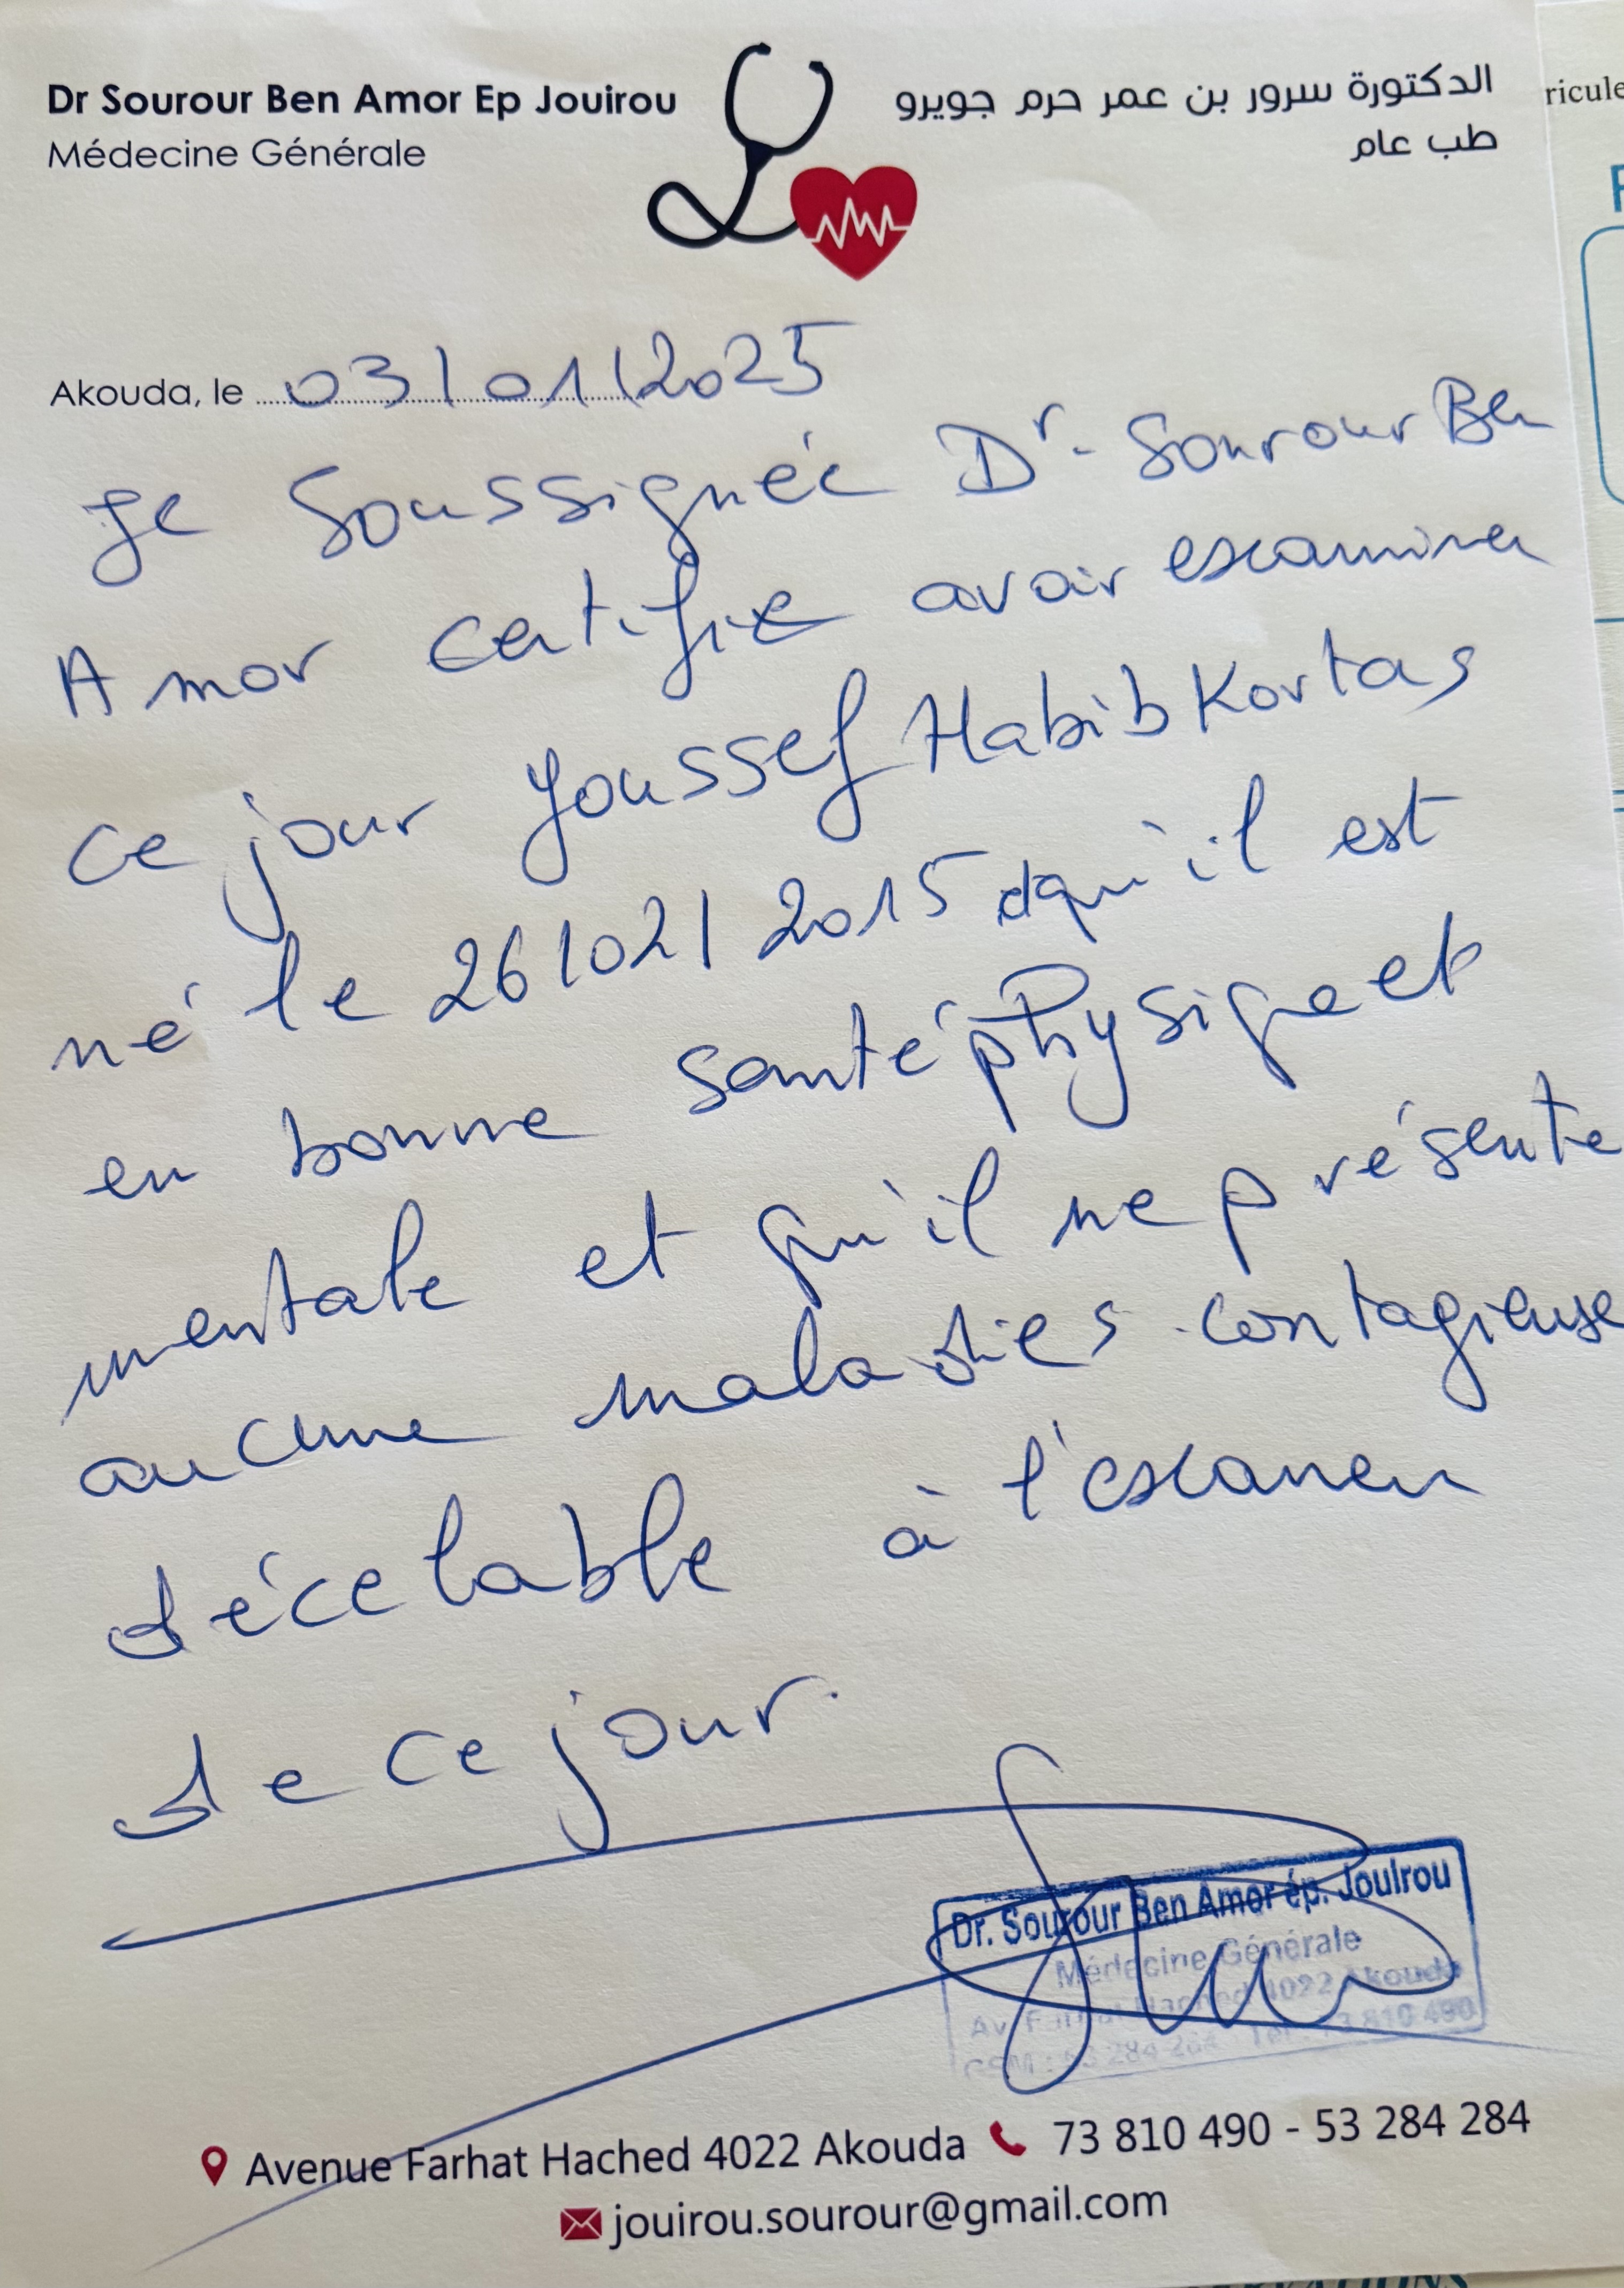 Dr Sourour Ben Amor Ep Jouirou
Médecine Générale
الدكتورة سرور بن عمر حرم جويرو
طب عام
ricule
Akouda, le 03/01/2025
Je Soussignée Dr. Sourour Ben
Amor certifie avoir examiner
ce jour Youssef Habib Kortas
né le 26/02/2015 et qu'il est
en bonne santé physique et
mentale et qu'il ne présente
aucune maladies contagieuse
décelable à l'examen
de ce jour.
Dr. Sourour Ben Amor ép. Jouirou
Médecine Générale
Av. Farhat Hached 4022 Akouda
GSM : 53 284 284 Tél : 73 810 490
Avenue Farhat Hached 4022 Akouda 73 810 490 - 53 284 284
jouirou.sourour@gmail.com